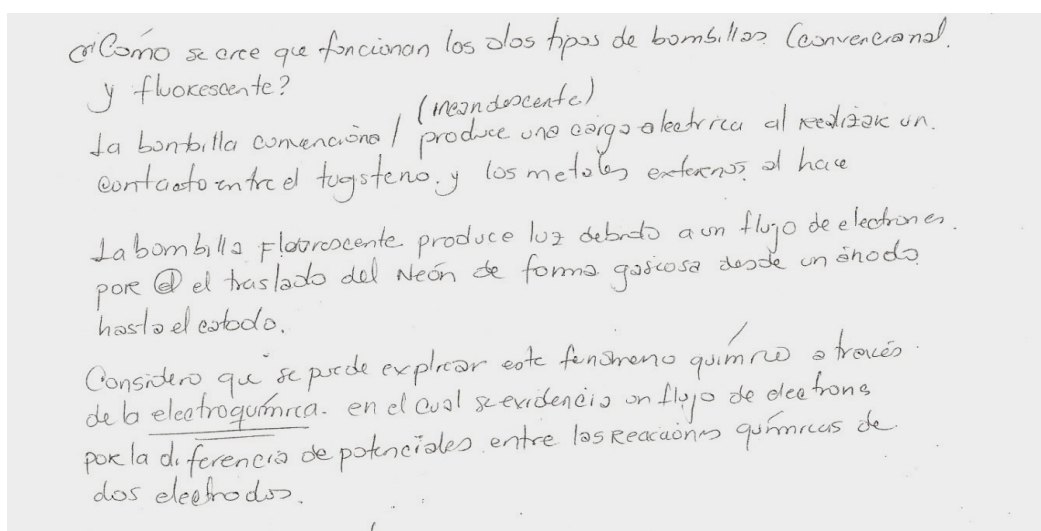 ¿Como se cree que funcionan los dos tipos de bombillas (convencional.
y fluorescente?
(incandescente)
La bombilla convencional produce una carga electrica al realizar un.
contacto entre el tugsteno. y los metales externos, al hace
La bombilla Fluorescente produce luz debido a un flujo de electrones.
por el traslado del Neón de forma gaseosa desde un ánodo
hasta el catodo.
Considero que se puede explicar este fenómeno químico a través
de la electroquímica. en el cual se evidencia un flujo de electrons
por la diferencia de potenciales entre las Reacciones químicas de
dos electrodos.